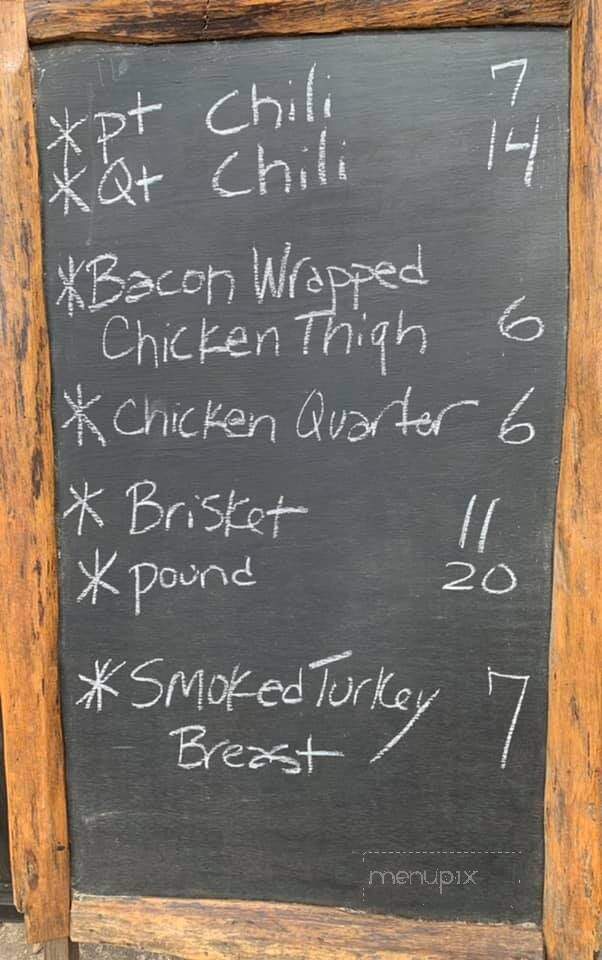 *pt Chili 7
*Qt Chili 14
*Bacon Wrapped
Chicken Thigh 6
*Chicken Quarter 6
*Brisket 11
*pound 20
*Smoked Turkey 7
Breast
menupix